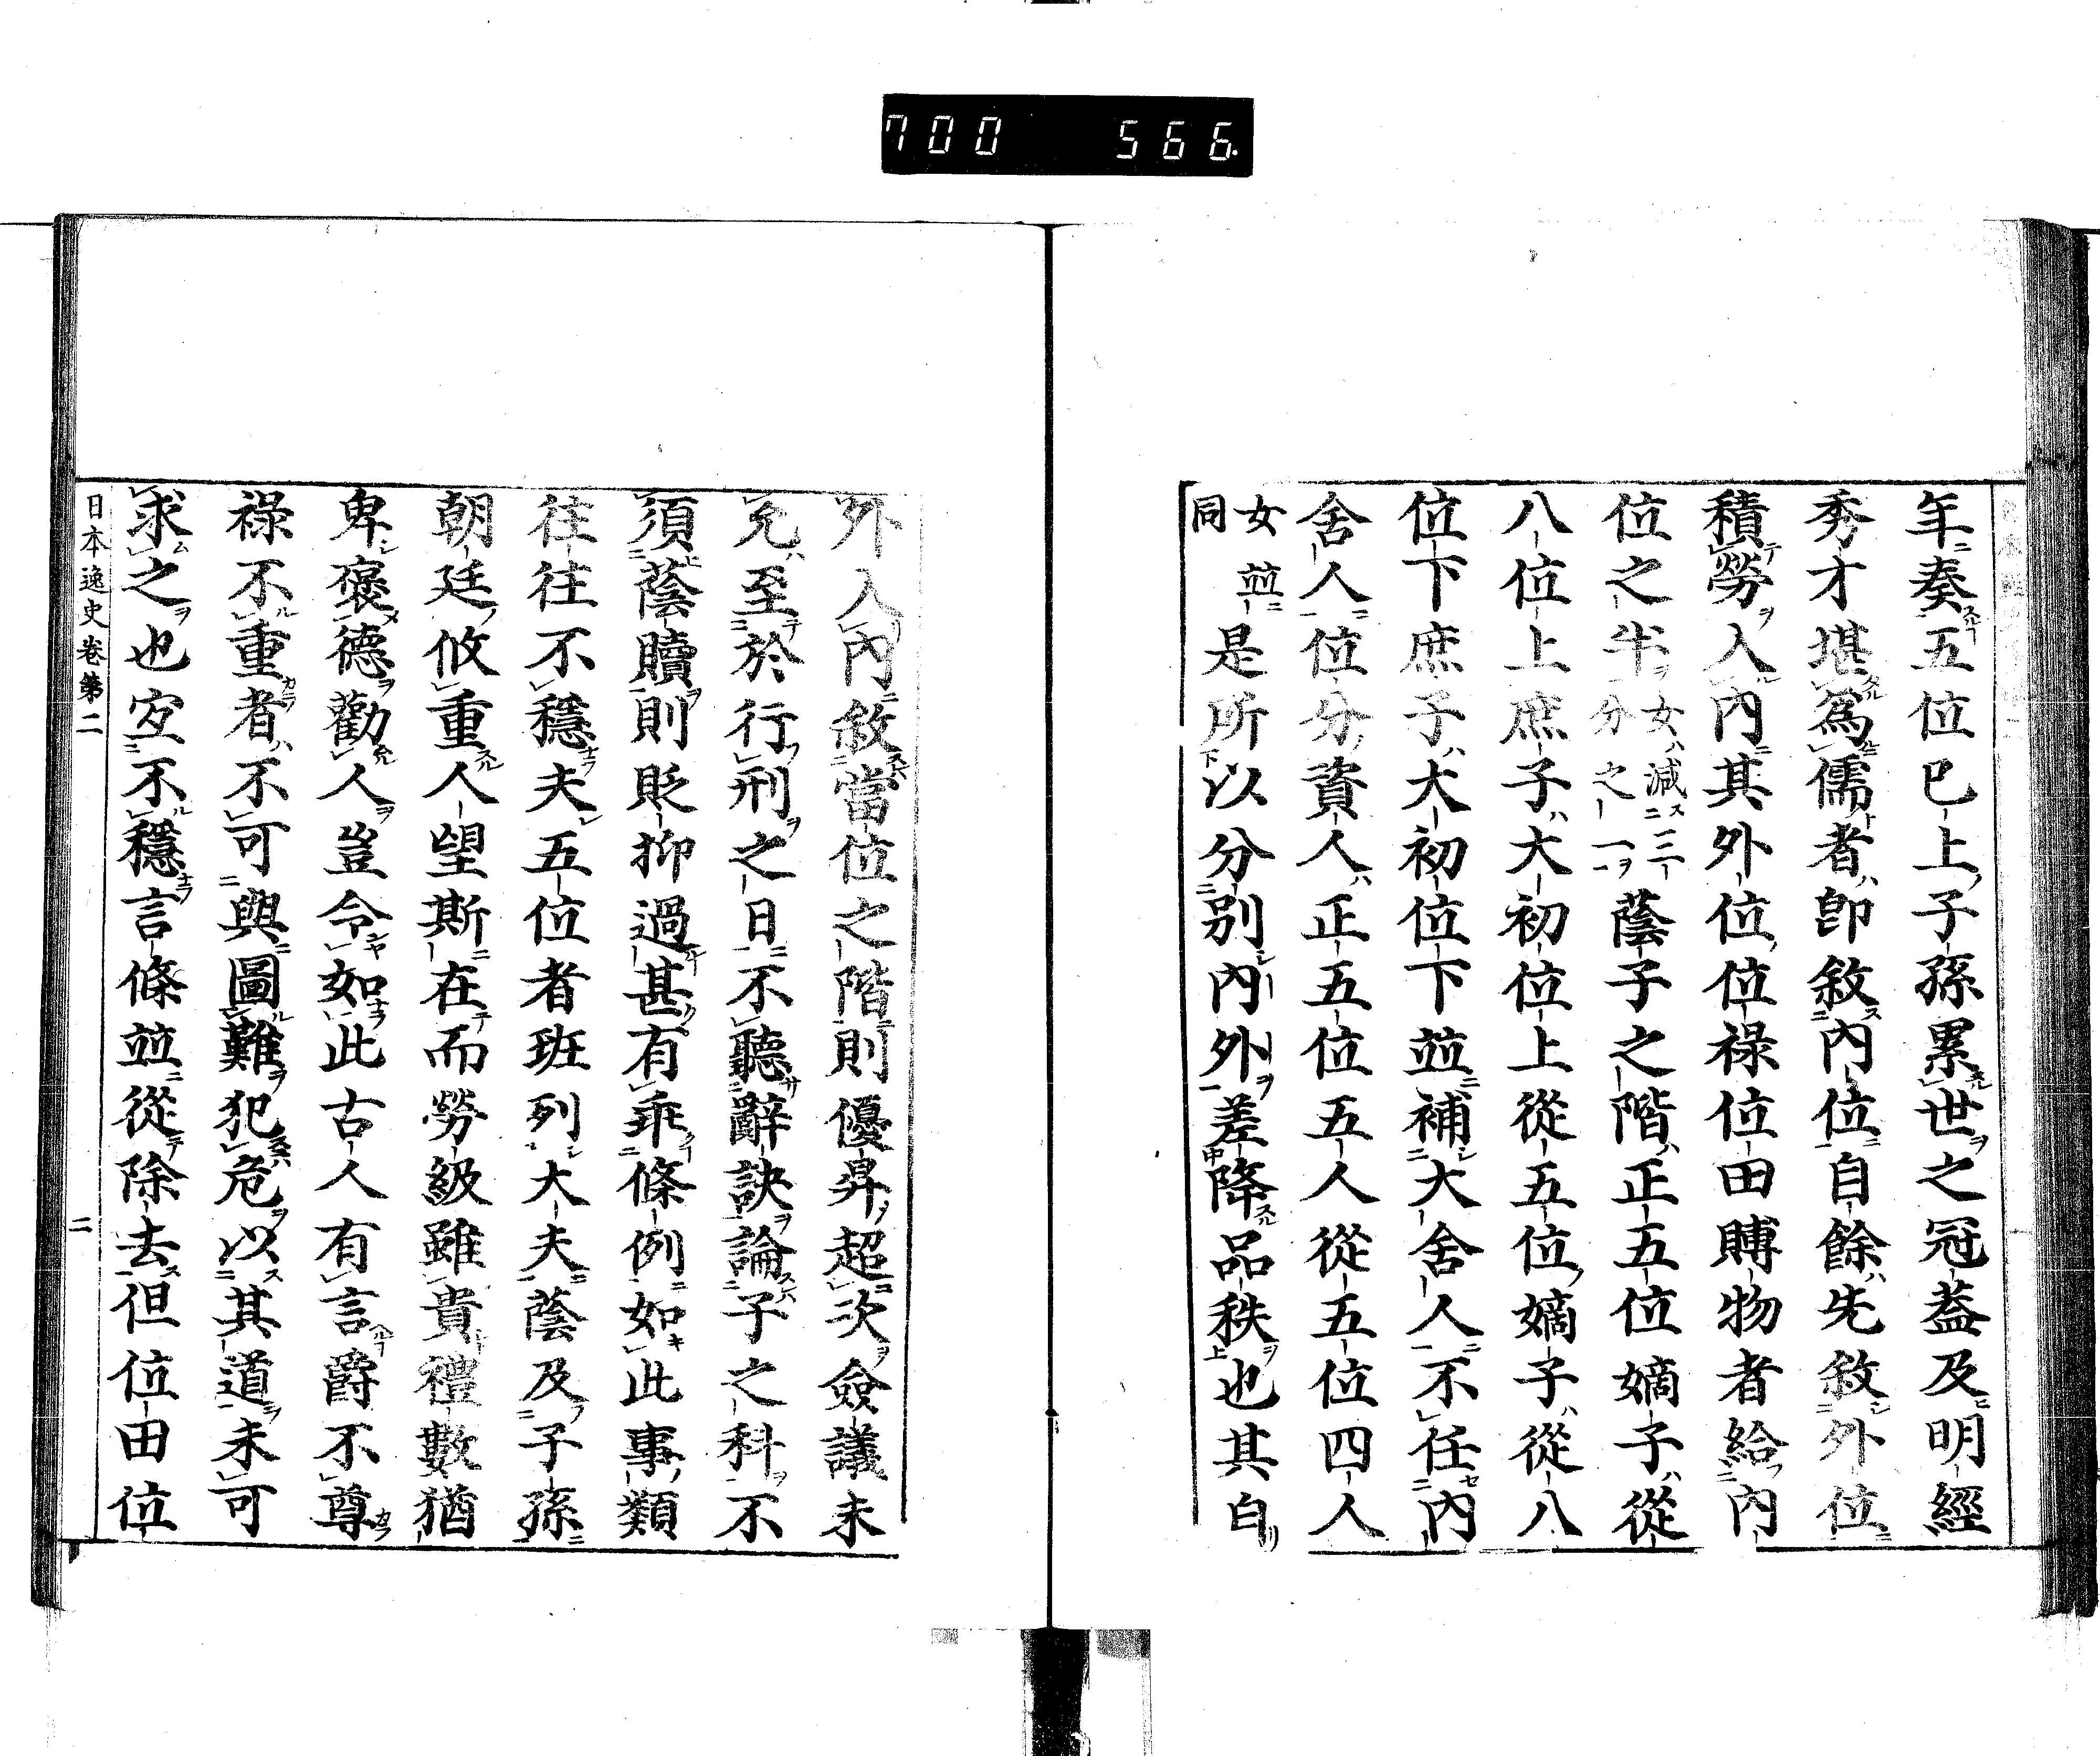 700 566
年奏五位已上子孫累世之冠蓋及明經
秀才堪爲儒者卽敘內位自餘先敘外位
積勞入內其外位位祿位田賻物者給內
位之半女減三分之一蔭子之階正五位嫡子從
八位上庶子大初位上從五位嫡子從八
位下庶子大初位下並補大舍人不任內
舍人位分資人正五位五人從五位四人
女並同是所以分別內外差降品秩也其自
外入內敘當位之階則優昇超次僉議未
允至於行刑之日不聽辭訣論子之科不
須蔭贖則貶抑過甚有乖條例如此事類
往往不穩夫五位者班列大夫蔭及子孫
朝廷攸重人望斯在而勞級雖貴禮數猶
卑褒德勸人豈令如此古人有言爵不尊
祿不重者不可與圖難犯危以其道未可
求之也宜不穩言條並從除去但位田位
日本逸史卷第二 二